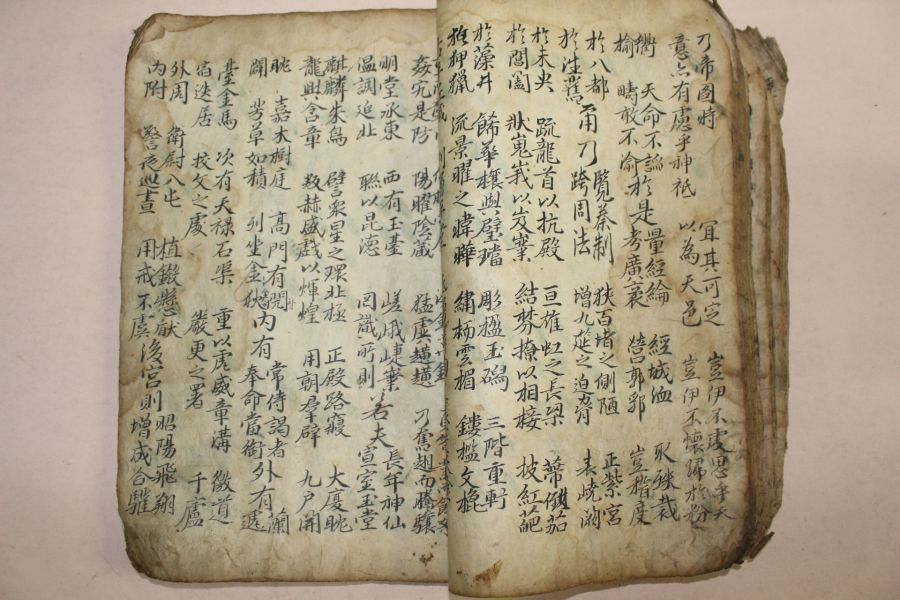 乃帝图時 冝其可定 豈伊不虔思乎天
意亦有慮乎神祇 以為天邑 豈伊不懷歸於枌
衢 天命不謟於是量經綸 經城洫 取殊裁
榆 疇敢不渝 考廣袤 營郭郛 豈稽度
於八都 覽秦制 狹百堵之側陋 正紫宮
於往舊 爾乃跨周法 增九筵之迫脅 表嶢闕
於未央 疏龍首以抗殿 亘雄虹之長梁 蔕倒茄
於閶闔 狀嵬峩以岌嶪 結棼橑以相接 披紅葩
於藻井 飾華榱與璧璫 彫楹玉磶 三階重軒
於狎獵 流景曜之暐曄 繡栭雲楣 鏤檻文㮰
姦宄是防 陽曜陰藏 猛虡趪趪 乃奮翅而騰驤
明堂承東 西有玉臺 嵯峨崨嶪若夫長年神仙
温調延北 聯以昆德 罔識所則 宣室玉堂
麒麟朱鳥 譬衆星之環北極 正殿路寢 大厦耽
龍興含章 赫戲以煇煌 用朝羣辟 九戶開
耽 嘉木樹庭 高門有閌 常侍謁者 蘭
闢 芳草如積 列坐金狄 内有奉命當衛外有
臺金馬 次有天禄石渠 重以虎威章溝 徼道
宿迭居 校文之處 嚴更之署 千廬
外周 衛尉八屯 植鎩懸瞂 昭陽飛翔
内附 警夜巡晝 用戒不虞後宮則增成合驩